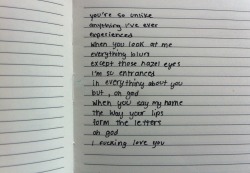 you're so unlike
anything i've ever
experienced
when you look at me
everything blurs
except those hazel eyes
i'm so entranced
in everything about you
but, oh god
when you say my name
the way your lips
form the letters
oh god
i fucking love you